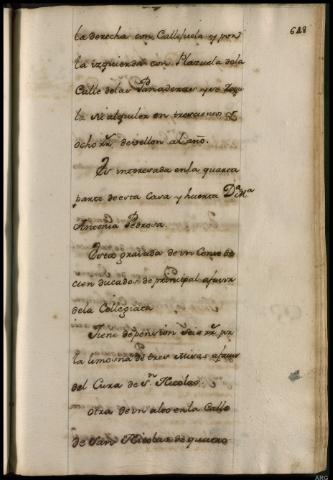 628
la derecha con Callejuela y por
la izquierda con Plazuela dela
Calle delas Panaderas y se
la su alquiler en trescientos y
ocho rr.s de vellon al año.
Es interesada en la quarta
parte de esta Casa y huerta D.a M.a
Antonia Pedrosa.
Esta gravada de un Censo de
cien ducados de principal a favor
dela Collegiata
Tiene de pension seis rr.s p.r
la limosna de tres Misas a favor
del Cura de S.n Nicolas.
Otra de un alto en la Calle
de San Nicolas de quatro
ARG